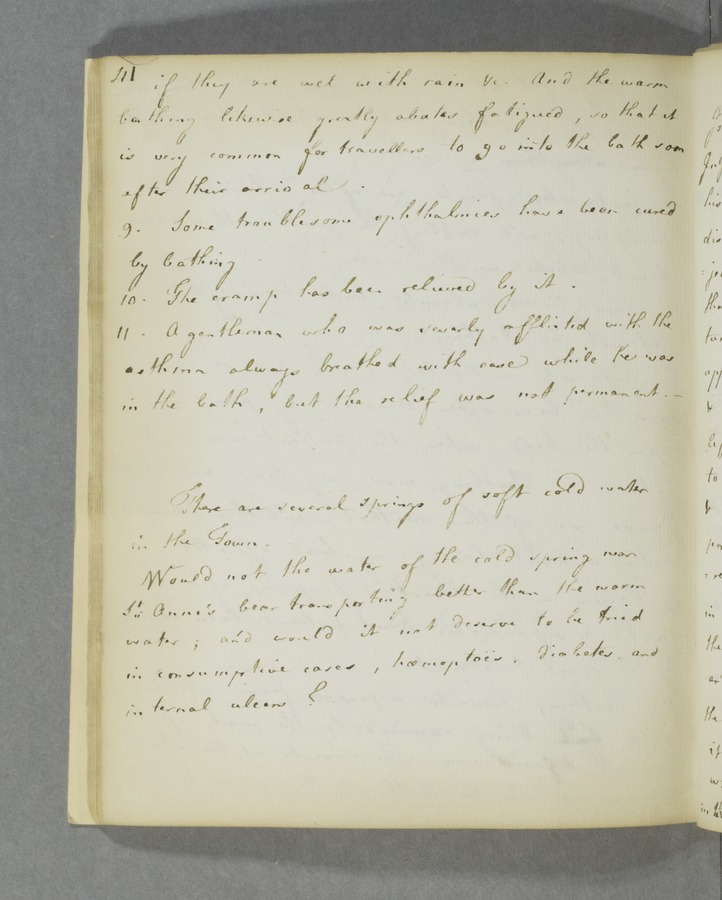 411
if they are wet with rain &c. And the warm
bathing likewise greatly abates fatigued, so that it
is very common for travellers to go into the bath soon
after their arrival.
9. Some troublesome ophthalmies have been cured
by bathing
10. The cramp has been relieved by it.
11. A gentleman who was severly afflicted with the
asthma always breathed with ease while he was
in the bath, but the relief was not permanent. -
There are several springs of soft cold water
in the Town.
Would not the water of the cold spring near
St Anne's bear transporting better than the warm
water; and would it not deserve to be tried
in consumptive cases, hœmoptoës, diabetes, and
internal ulcers?